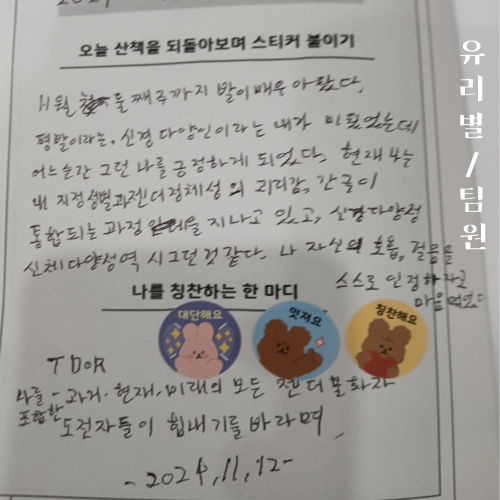 오늘 산책을 되돌아보며 스티커 붙이기
11월 둘째 주까지 발이 매우 아팠다.
평발이라는, 신경다양인이라는 내가 미웠었는데
어느순간 그런 나를 긍정하게 되었다. 현재 나는
내 지정성별과 젠더정체성의 괴리감, 간극이
통합되는 과정을 지나고 있고, 신경다양성
신체다양성 역시 그런것 같다. 나 자신의 호흡, 걸음을
스스로 인정하자고
마음먹었다
나를 칭찬하는 한 마디
대단해요
멋져요
칭찬해요
TDoR
나를 포함한 - 과거·현재·미래의 모든 젠더
도전자들이 힘내기를 바라며,
-2024,11,12-
유리별/팀원